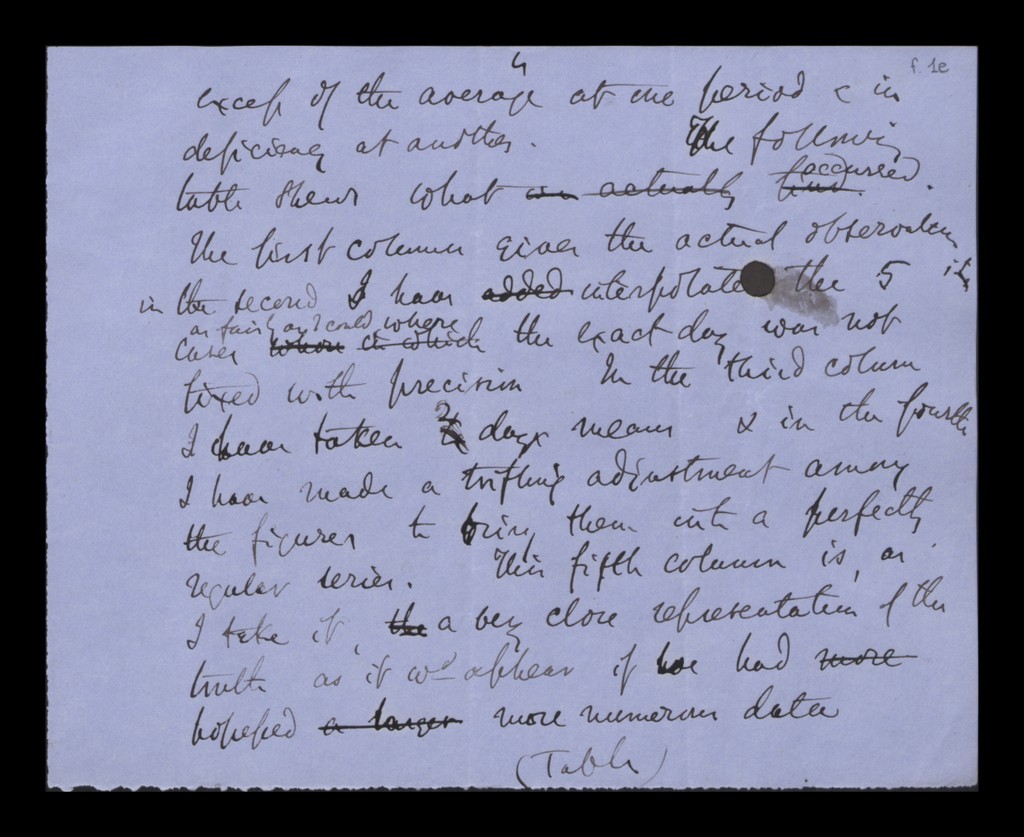 4
f. 1e
excess of the average at one period & in
deficiency at another. The following
table shews what in actually find occurred.
The first column gives the actual observations
in the second I have added interpolated the 5
as fairly as I could where
cases whose in which the exact day was not
fixed with precision In the third column
I have taken days means & in the fourth
I have made a trifling adjustment among
the figures to bring them into a perfectly
regular series. This fifth column is, as
I take it, the a very close representation of the
truth as it wd appear if we had more
possessed a larger more numerous data
(Table)